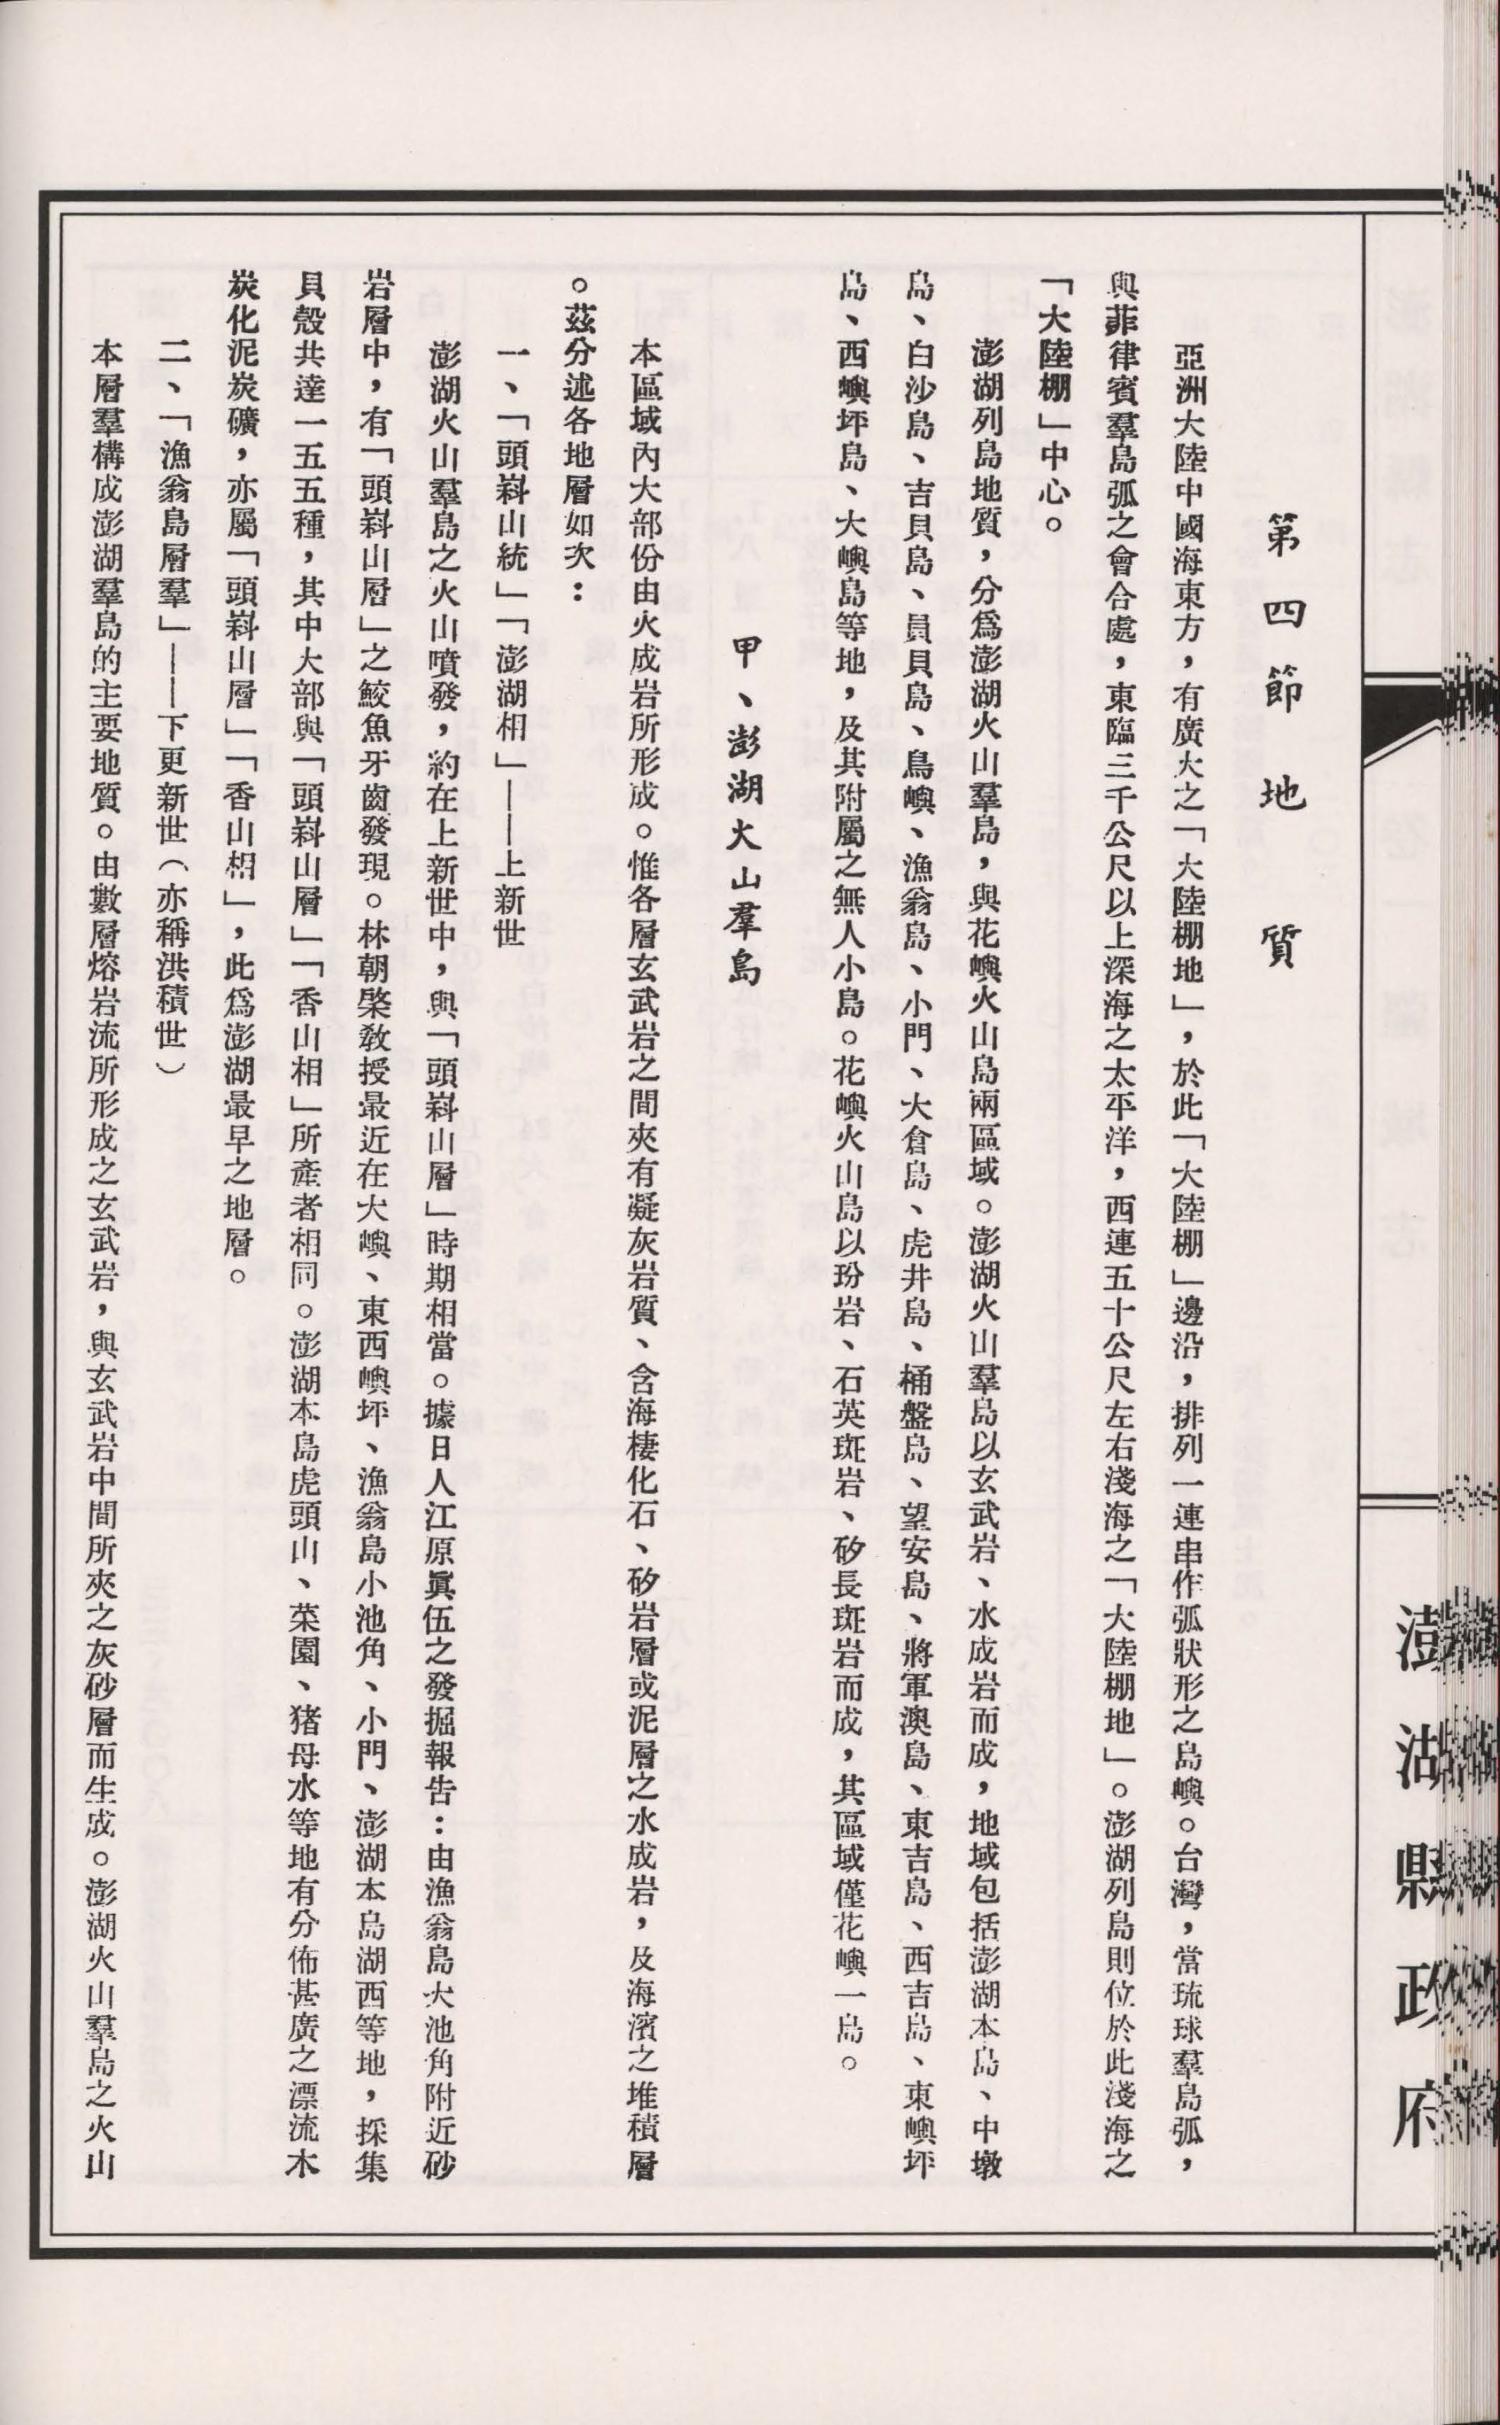 澎湖縣政府
第四節 地質
亞洲大陸中國海東方，有廣大之「大陸棚地」，於此「大陸棚」邊沿，排列一連串作弧狀形之島嶼。台灣，當琉球羣島弧，
與菲律賓羣島弧之會合處，東臨三千公尺以上深海之太平洋，西連五十公尺左右淺海之「大陸棚地」。澎湖列島則位於此淺海之
「大陸棚」中心。
澎湖列島地質，分爲澎湖火山羣島，與花嶼火山島兩區域。澎湖火山羣島以玄武岩、水成岩而成，地域包括澎湖本島、中墩
島、白沙島、吉貝島、員貝島、鳥嶼、漁翁島、小門、大倉島、虎井島、桶盤島、望安島、將軍澳島、東吉島、西吉島、東嶼坪
島、西嶼坪島、大嶼島等地，及其附屬之無人小島。花嶼火山島以玢岩、石英斑岩、矽長斑岩而成，其區域僅花嶼一島。
甲、澎湖火山羣島
本區域內大部份由火成岩所形成。惟各層玄武岩之間夾有凝灰岩質、含海棲化石、矽岩層或泥層之水成岩，及海濱之堆積層
。茲分述各地層如次：
一、「頭嵙山統」「澎湖相」——上新世
澎湖火山羣島之火山噴發，約在上新世中，與「頭嵙山層」時期相當。據日人江原眞伍之發掘報告：由漁翁島大池角附近砂
岩層中，有「頭嵙山層」之鮫魚牙齒發現。林朝棨敎授最近在大嶼、東西嶼坪、漁翁島小池角、小門、澎湖本島湖西等地，採集
貝殼共達一五五種，其中大部與「頭嵙山層」「香山相」所產者相同。澎湖本島虎頭山、菜園、猪母水等地有分佈甚廣之漂流木
炭化泥炭礦，亦屬「頭嵙山層」「香山相」，此爲澎湖最早之地層。
二、「漁翁島層羣」——下更新世（亦稱洪積世）
本層羣構成澎湖羣島的主要地質。由數層熔岩流所形成之玄武岩，與玄武岩中間所夾之灰砂層而生成。澎湖火山羣島之火山